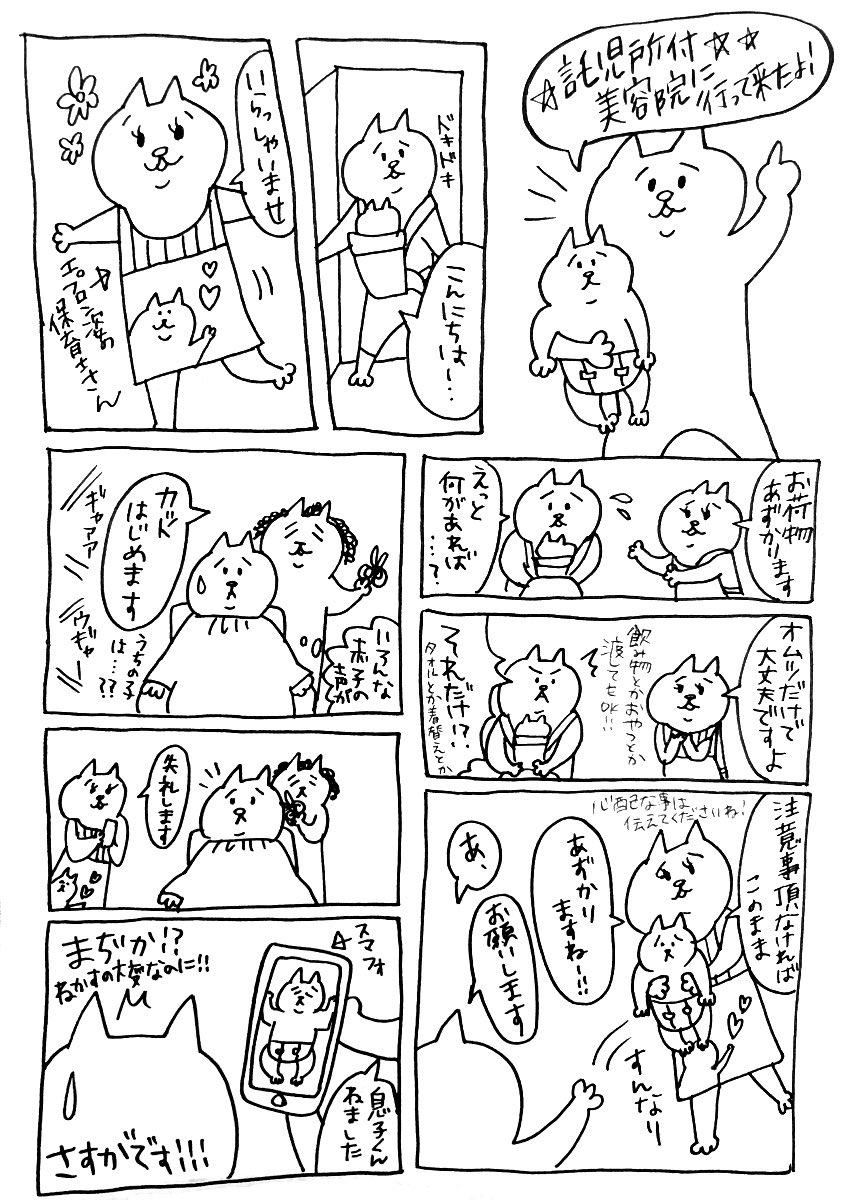 ☆託児所付☆☆
美容院に
行って来たよ!
ドキドキ
こんにちは!…
いらっしゃいませ
エプロン姿の
保育士さん
お荷物
あずかります
えっと
何があれば
…?
オムツだけで
大丈夫ですよ
飲み物とかおやつとか
渡してもOK!!
それだけ!?
タオルとか着替えとか
注意事項なければ
このまま
心配な事は
伝えてくださいね!
あずかり
ますねー!!
あ、
お願いします
すんなり
カット
はじめます
ギャアア
ウギャー
うちの子
は…??
いろんな
赤子の
声が
失礼します
☆スマフォ
まぢか!?
ねかすの大変なのに!!
息子くん
ねました
さすがです!!!